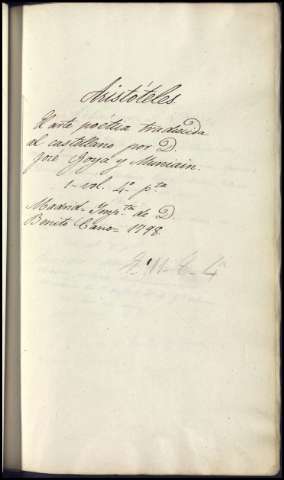 Aristóteles
El arte poetica traducida
al castellano por D.
José Goya y Muniain.
1 - vol. 4º pta
Madrid - Impta de D.
Benito Cano - 1798.
4º